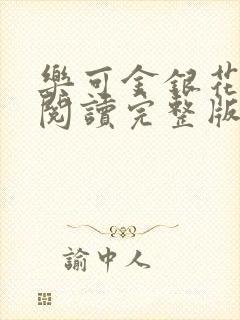 樂可金銀花
閱讀完整版
諭中人